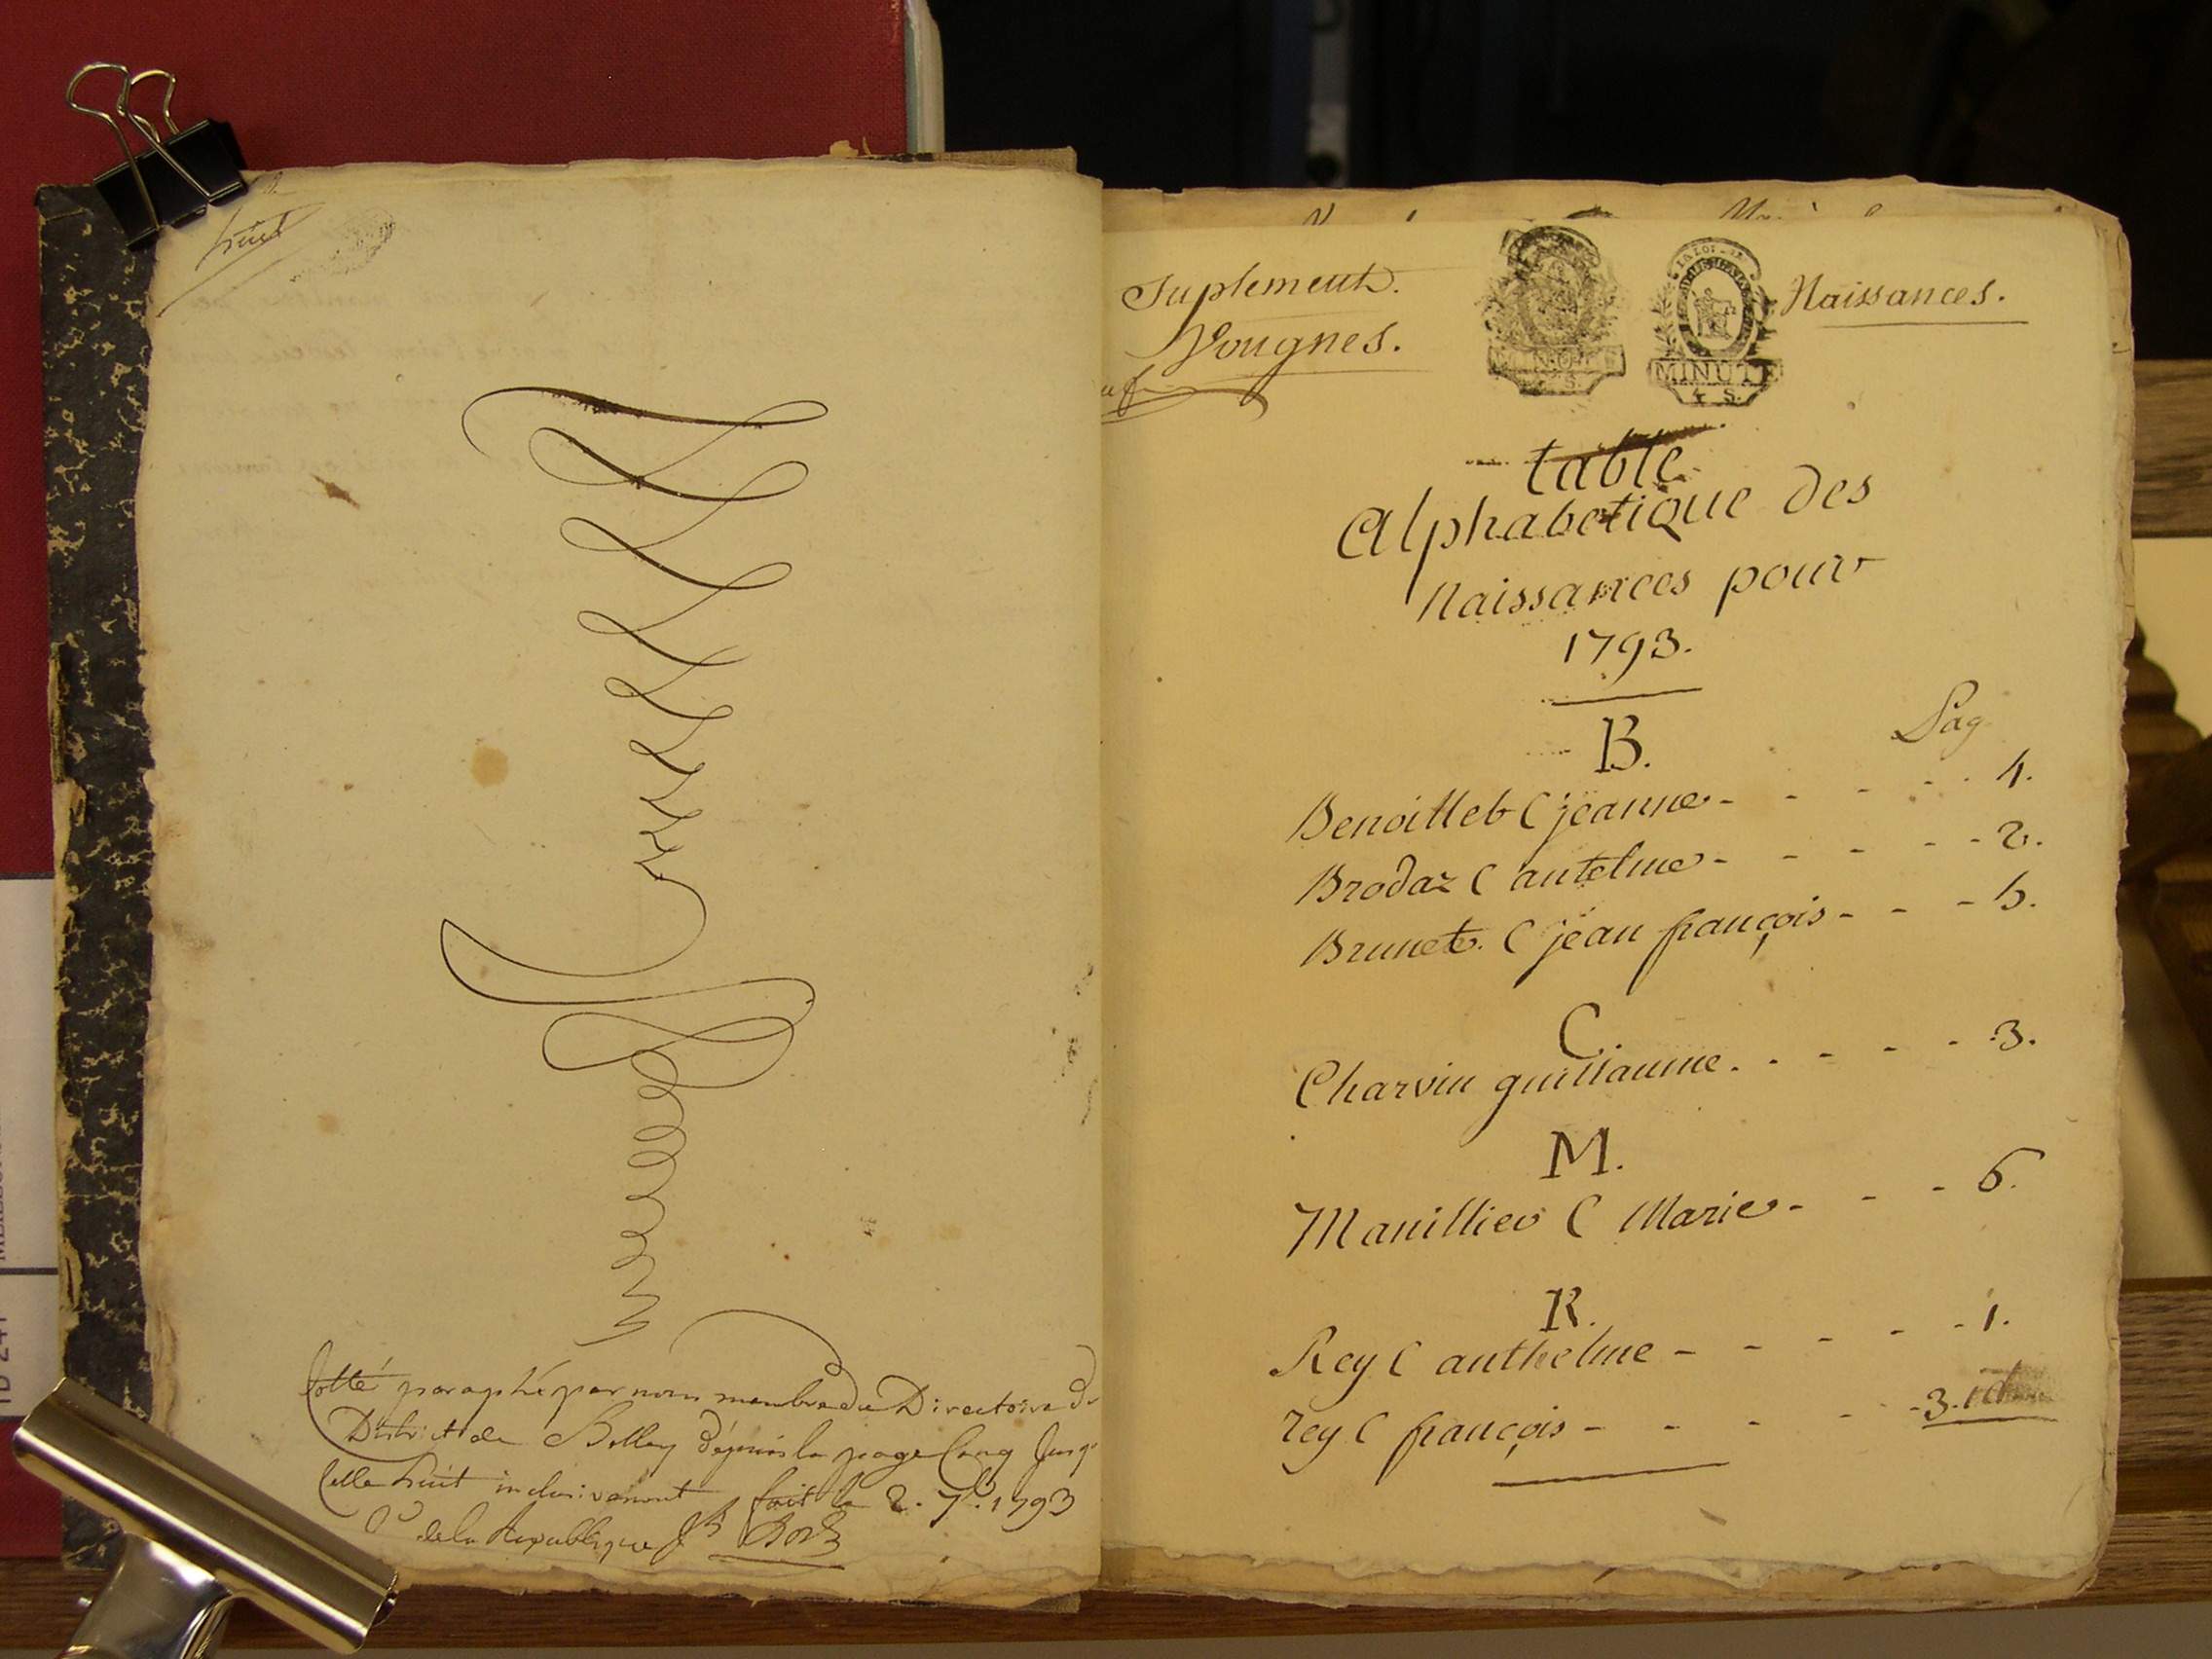 huit
Cotté paraphé par nous membre du Directoire du
District de Belley dépuis la page Cinq Jusq'
Celle huit inclusivement fait le 2. 7.bre 1793
de la Republique
Suplement.
Vougnes.
Naissances.
MINUTE
4 S.
MINUTE
4 S.
table
Alphabetique des
Naissances pour
1793.
Pag
B.
Benoillet C jeanne - - - - - 4.
Brodaz C antelme - - - - - 2.
Brunet. C jean françois - - - 5.
C.
Charvin guillaume. - - - - 3.
M.
Manillier C Marie - - - 6.
R.
Rey C anthelme - - - - - 1.
rey C françois - - - - - 3. id